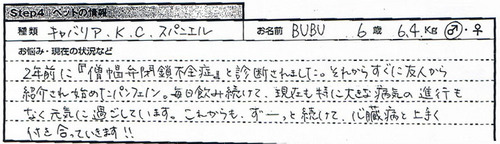 Step4 ペットの情報
種類 キャバリア.K.C.スパニエル お名前 BUBU 6歳 6.4Kg ♂・♀
お悩み・現在の状況など
2年前に『僧帽弁閉鎖不全症』と診断されました。それからすぐに友人から
紹介され始めたパンフェノン。毎日飲み続けて、現在も特に大きな病気の進行も
なく元気に過ごしています。これからも、ずーっと続けて、心臓病と上手く
付き合っていきます!!